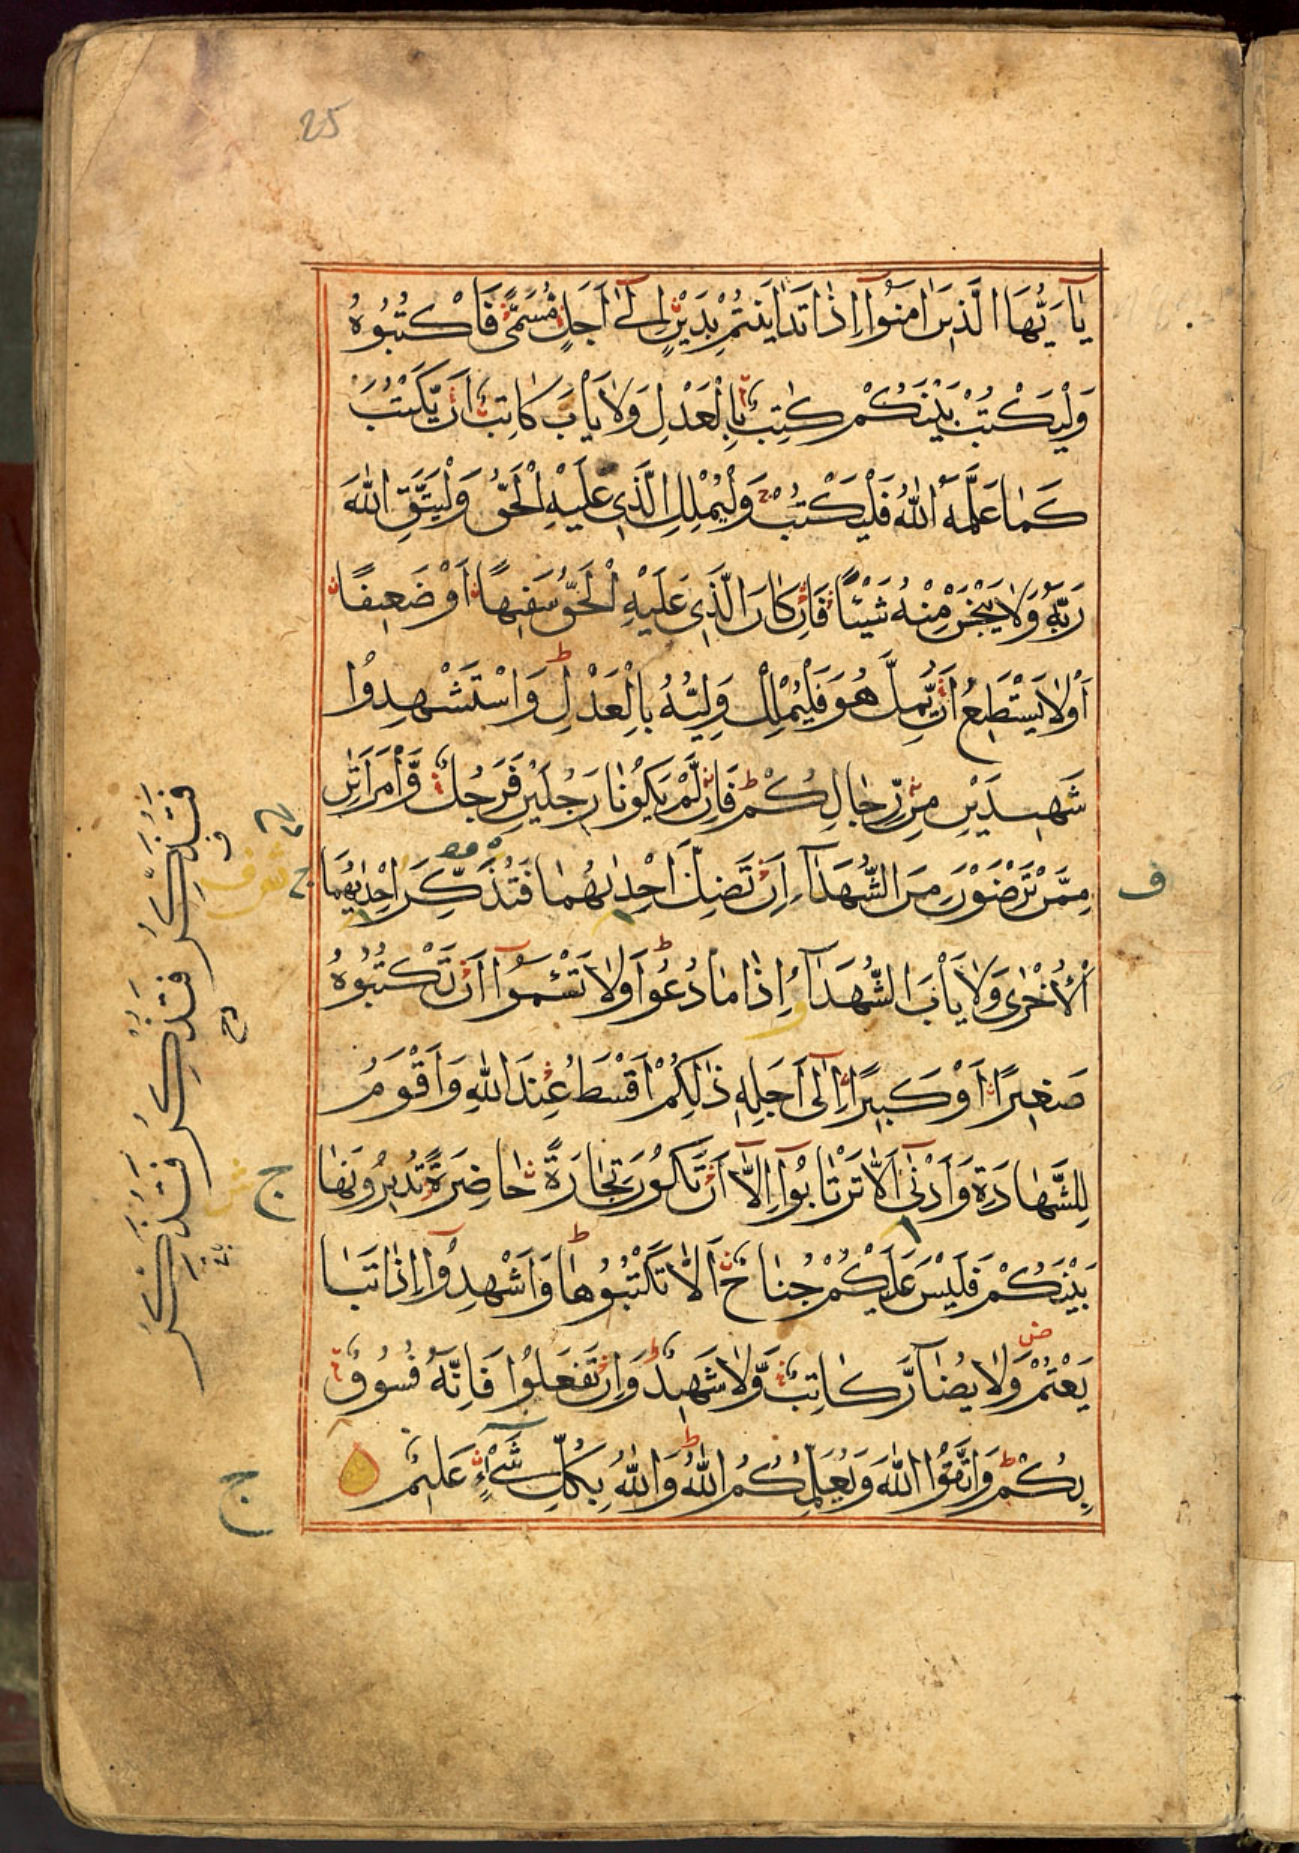 25
يٰاَيُّهَا الَّذِيْنَ اٰمَنُوْٓا اِذَا تَدَايَنْتُمْ بِدَيْنٍ اِلٰٓى اَجَلٍ مُّسَمًّى فَاكْتُبُوْهُ
وَلْيَكْتُبْ بَيْنَكُمْ كٰتِبٌ بِالْعَدْلِ وَلَا يَاْبَ كَاتِبٌ اَنْ يَّكْتُبَ
كَمَا عَلَّمَهُ اللّٰهُ فَلْيَكْتُبْ وَلْيُمْلِلِ الَّذِي عَلَيْهِ الْحَقُّ وَلْيَتَّقِ اللّٰهَ
رَبَّهُ وَلَا يَبْخَسْ مِنْهُ شَيْئًا فَاِنْ كَانَ الَّذِي عَلَيْهِ الْحَقُّ سَفِيْهًا اَوْ ضَعِيفًا
اَوْ لَا يَسْتَطِيعُ اَنْ يُّمِلَّ هُوَ فَلْيُمْلِلْ وَلِيُّهُ بِالْعَدْلِ وَاسْتَشْهِدُوْا
شَهِيدَيْنِ مِنْ رِّجَالِكُمْ فَاِنْ لَّمْ يَكُوْنَا رَجُلَيْنِ فَرَجُلٌ وَّامْرَاَتٰنِ
مِمَّنْ تَرْضَوْنَ مِنَ الشُّهَدَآءِ اِنْ تَضِلَّ اِحْدٰىهُمَا فَتُذَكِّرَ اِحْدٰيهُمَا
الْاُخْرٰى وَلَا يَاْبَ الشُّهَدَآءُ اِذَا مَا دُعُوْا وَلَا تَسْئَمُوْٓا اَنْ تَكْتُبُوْهُ
صَغِيرًا اَوْ كَبِيرًا اِلٰٓى اَجَلِهِ ذٰلِكُمْ اَقْسَطُ عِنْدَ اللّٰهِ وَاَقْوَمُ
لِلشَّهَادَةِ وَاَدْنٰٓى اَلَّا تَرْتَابُوْٓا اِلَّآ اَنْ تَكُوْنَ تِجَارَةً حَاضِرَةً تُدِيرُوْنَهَا
بَيْنَكُمْ فَلَيْسَ عَلَيْكُمْ جُنَاحٌ اَلَّا تَكْتُبُوْهَا وَاَشْهِدُوْٓا اِذَا تَبَا
يَعْتُمْ وَلَا يُضَآرَّ كَاتِبٌ وَّلَا شَهِيدٌ وَاِنْ تَفْعَلُوْا فَاِنَّهُ فُسُوْقٌ
بِكُمْ وَاتَّقُوا اللّٰهَ وَيُعَلِّمُكُمُ اللّٰهُ وَاللّٰهُ بِكُلِّ شَيْءٍ عَلِيْمٌ
فَتُذَكِّرُ فَتُذْكِرُ فَتُذَكِّرَ
ف
ج
ج
ج